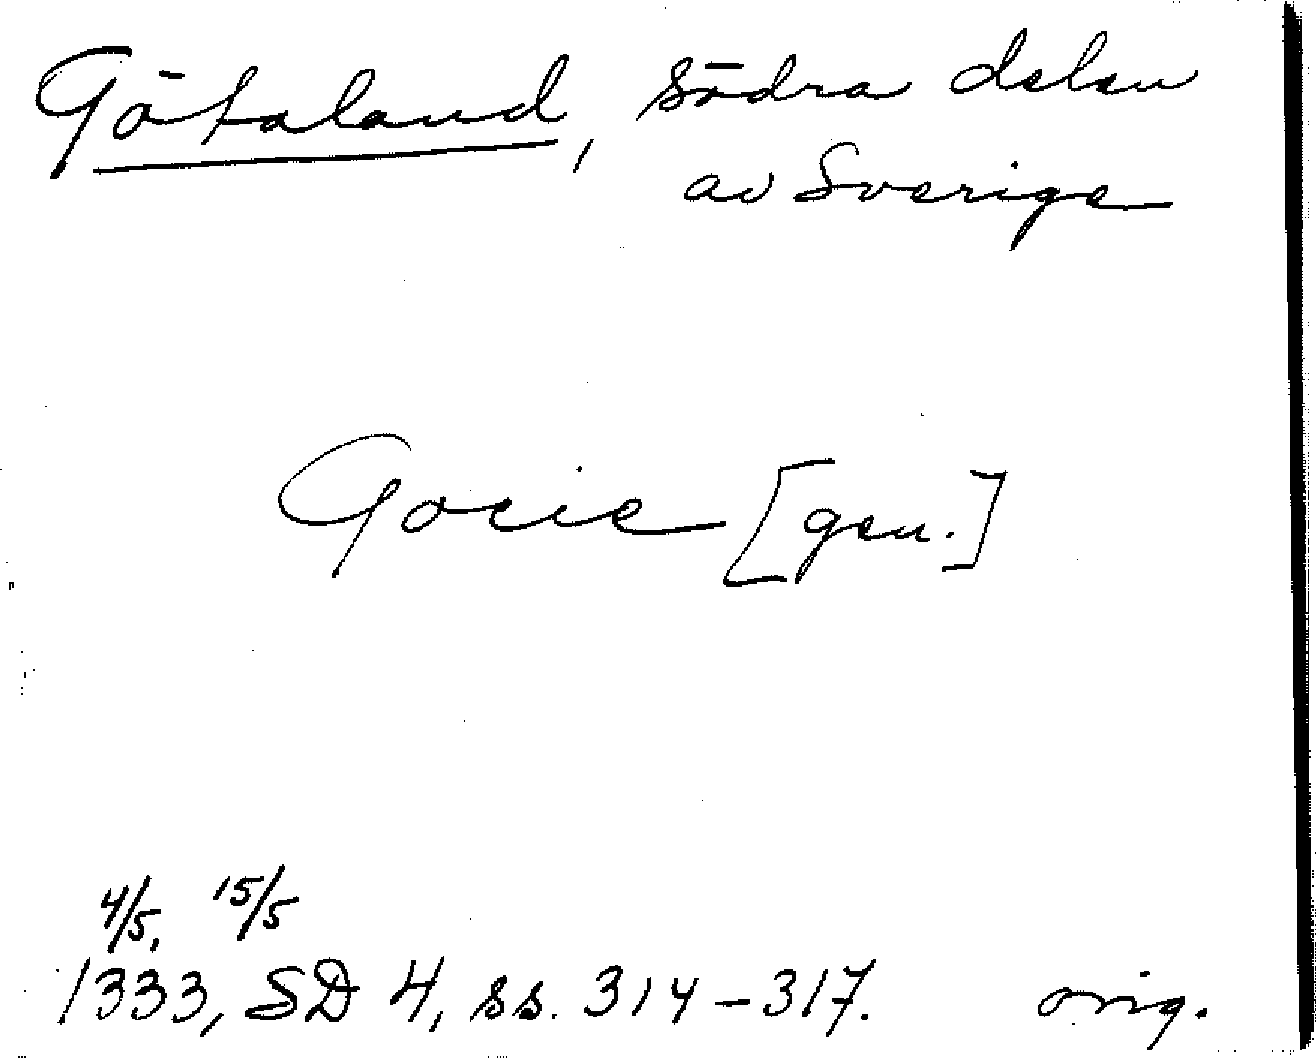 Götaland, södra delen
av Sverige
Gocie [gen.]
4/5, 15/5
1333, SD 4, ss. 314-317. orig.